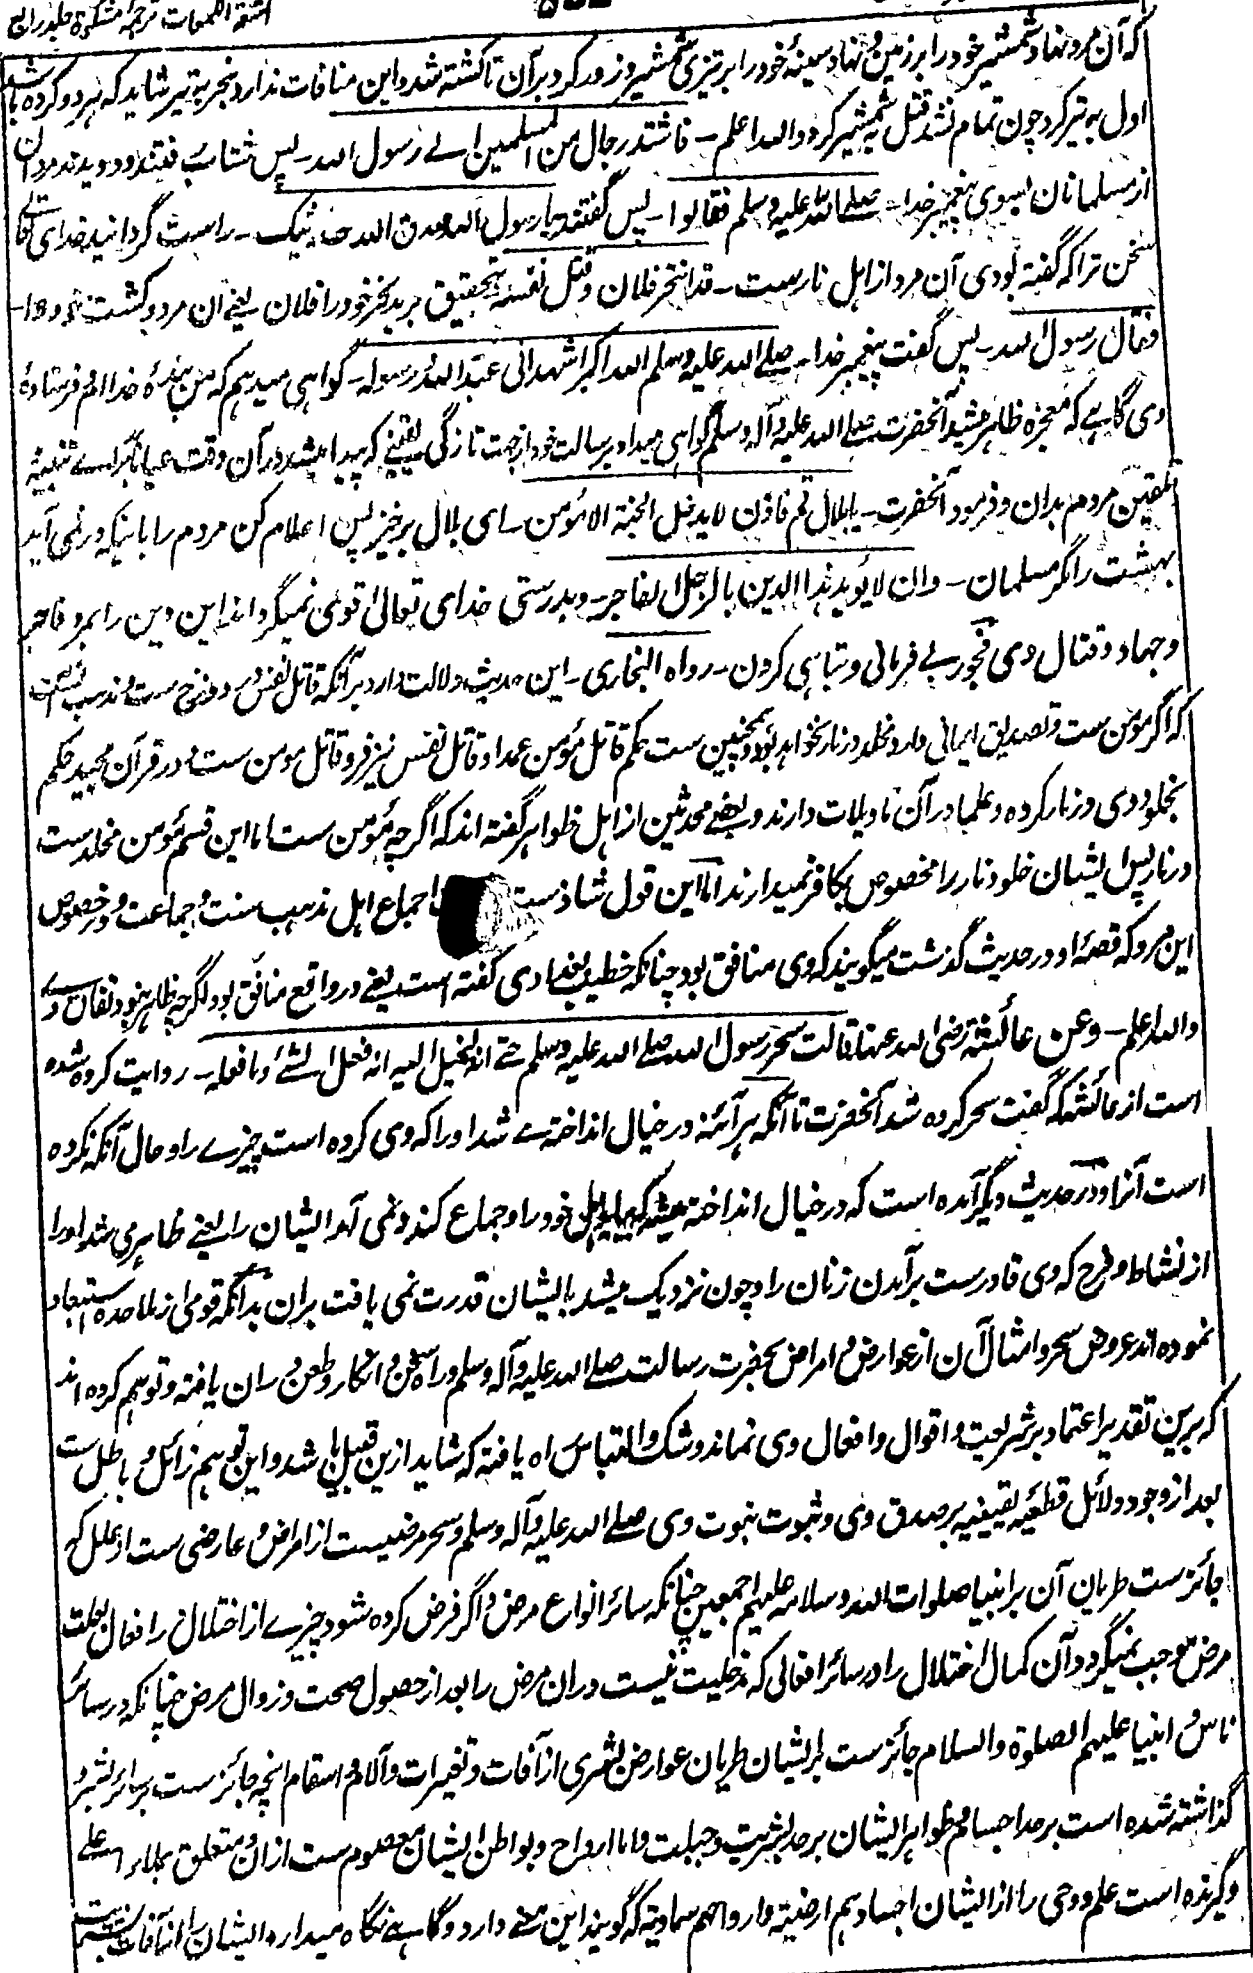 اشعة اللمعات ترجمهٔ مشکوة جلد رابع
که آن مرد نهاد شمشیر خود را بر زمین و نهاد سینهٔ خود را بر تیزی شمشیر و زور کرد بر آن تا کشته شد و این منافات ندارد بنحر به تیر شاید که هر دو کرده باشد
اول به تیر کرد چون تمام نشد قتل به شمشیر کرد والله اعلم ـ فاشتد رجال من المسلمین الے رسول الله ـ پس شتاب رفتند و دویدند مردان
از مسلمانان بسوی پیغمبر خدا ـ صلے الله علیه وسلم فقالوا ـ پس گفتند یا رسول الله صدق الله حدیثک ـ راست گردانید خدای تعالے
سخن ترا که گفته بودی آن مرد از اهل نارست ـ قد انتحر فلان و قتل نفسه بتحقیق برید نحر خود را فلان یعنے آن مرد و کشت خود را ـ
فقال رسول الله ـ پس گفت پیغمبر خدا ـ صلے الله علیه وسلم الله اکبر اشهد انی عبد الله و رسوله ـ گواهی میدهم که من بندهٔ خدا ام و فرستادهٔ
وی گاهے که معجزه ظاهر میشد آنحضرت صلے الله علیه و آله وسلم گواهی میداد برسالت خود از جهت تازگی یقینے که پیدا میشد در آن وقت عیانا برای تنبیه
تلقین مردم بدان و فرمود آنحضرت ـ یا بلال قم فاذن لا یدخل الجنة الا مؤمن ـ ای بلال برخیز پس اعلام کن مردم را باینکه در نمی آید
بهشت را مگر مسلمان ـ وان الله یؤید هذا الدین بالرجل الفاجر ـ و بدرستی خدای تعالیٰ قوی میگرداند این دین را بمرد فاجر
و جهاد و قتال وی فجور بے فرمانی و تباهی کردن ـ رواه البخاری ـ این حدیث دلالت دارد بر آنکه قاتل نفس در دوزخ ست و مذهب آنست
که اگر مؤمن ست و تصدیق ایمانی دارد مخلد در نار نخواهد بود و همچنین ست حکم قاتل مؤمن عمدا و قاتل نفس نیز فرد قاتل مومن ست و در قرآن مجید حکم
بخلود وی در نار کرده و علما در آن تاویلات دارند و بعضے محدثین از اهل ظواهر گفته اند که اگر چه مؤمن ست اما این قسم مؤمن مخلد ست
در نار پس ایشان خلود نار را مخصوص بکافر نمیدارند اما این قول شاذ ست اجماع اهل مذهب سنت و جماعت و در خصوص
این مرد که قصهٔ او در حدیث گذشت میگویند که وی منافق بود چنانکه خطیب بغدادی گفته است یعنے در واقع منافق بود اگر چه ظاهر نبود نفاق وے
والله اعلم ـ وعن عائشة رضی الله عنها قالت سحر رسول الله صلے الله علیه وسلم حتے انه لیخیل الیه انه فعل الشئ وما فعله ـ روایت کرده شده
است از عائشه که گفت سحر کرده شد آنحضرت تا آنکه هر آئنه در خیال انداخته مے شد او را که وی کرده است چیزے را و حال آنکه نکرده
است آنرا و در حدیث دیگر آمده است که در خیال انداخته میشد که بیاید اهل خود را و جماع کند و نمی آمد ایشان را یعنے ظاهر می شد او را
از نشاط و فرح که وی قادر ست بر آمدن زنان را و چون نزدیک میشد بایشان قدرت نمی یافت بر آن بدانکه قومی از ملاحده استبعاد
نموده اند عروض سحر و امثال آن از عوارض و امراض بحضرت رسالت صلے الله علیه و آله وسلم و راه سخن و انکار و طعن در ان یافته و توهم کرده اند
که برین تقدیر اعتماد بر شریعت و اقوال و افعال وی نماند و شک و التباس راه یافته که شاید ازین قبیل باشد و این توهم زائل و باطل ست
بعد از وجود دلائل قطعیه یقینیه بر صدق وی و ثبوت نبوت وی صلے الله علیه و آله وسلم و سحر مرضیست از امراض و عارضی ست از علل که
جائز ست طریان آن بر انبیا صلوات الله و سلامه علیهم اجمعین چنانکه سائر انواع مرض و اگر فرض کرده شود چیزے از اختلال در افعال بعلت
مرض موجب نمیگردد آن کمال اختلال را در سائر افعالی که دخلیت نیست در ان مرض را بعد از حصول صحت و زوال مرض چنانکه در سائر
ناس و انبیا علیهم الصلوة والسلام جائز ست بر ایشان طریان عوارض بشری از آفات و تغیرات و آلام و اسقام آنچه جائز ست بر سائر بشر و
گذاشته شده است بر حد اجسام و ظواهر ایشان بر حد بشریت و جبلت و اما ارواح و بواطن ایشان معصوم ست از ان و متعلق بملاء اعلے
و گیرنده است علم و وحی را از ایشان اجسادهم ارضیة و ارواحهم سماویة که گویند این معنے دارد و گاهے نگاه میدارد ایشان را از آفات